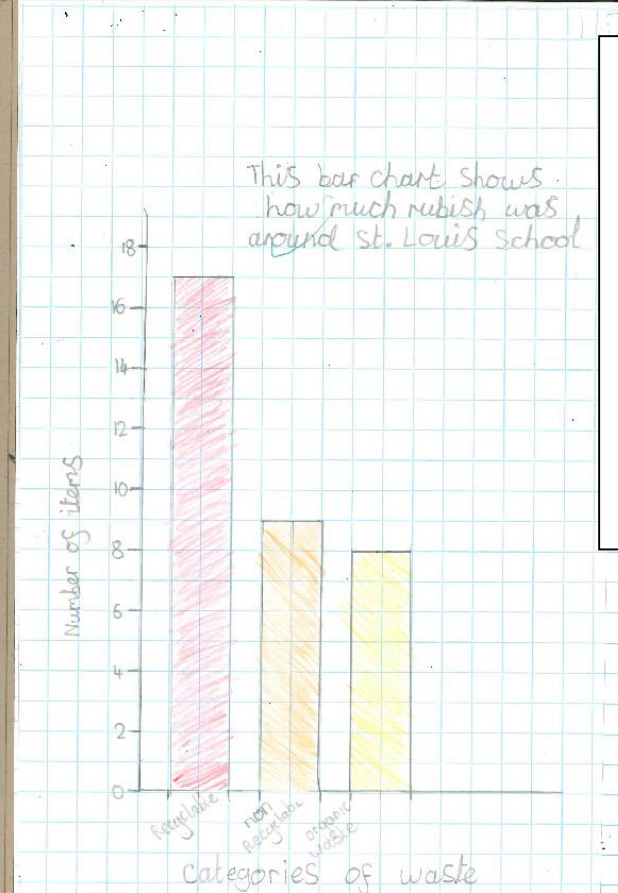 This bar chart shows
how much rubish was
around St. Louis School
18
16
14
12
10
8
6
4
2
0
Number of items
Recyclable
non
Recyclable
organic
waste
categories of waste